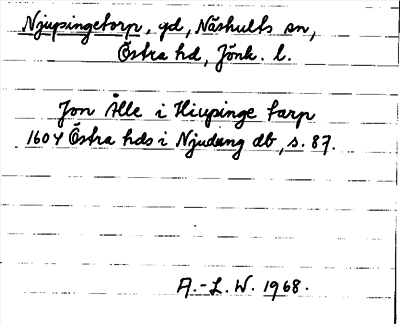 Njupingetorp, gd, Näshults sn,
Östra hd, Jönk. l.
Jon Ålle i Hiupinge tarp
1604 Östra hds i Njudung db, s. 87.
A.-L. W. 1968.